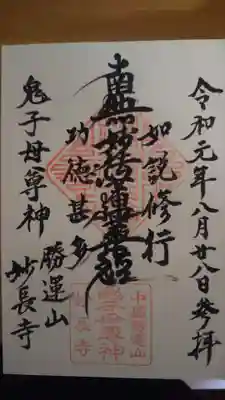 令和元年八月廿八日參拝
如説修行
南無妙法蓮華経
功徳甚多
鬼子母尊神
勝運山
妙長寺
勝運山
妙長寺